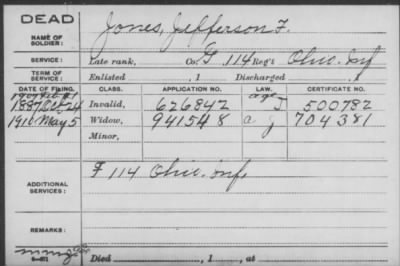 DEAD
NAME OF SOLDIER: Jones, Jefferson F.
SERVICE: Late rank, Co. G 114 Reg't Ohio. Inf
TERM OF SERVICE: Enlisted , 1 Discharged , 1
DATE OF FILING. CLASS. APPLICATION NO. LAW. CERTIFICATE NO.
1907 Feb 21 age
1887 Oct 24 Invalid, 626842 J 500782
1910 May 5 Widow, 941548 a g 704381
Minor,
ADDITIONAL SERVICES: F 114 Ohio. Inf.
REMARKS:
Died , 1 , at